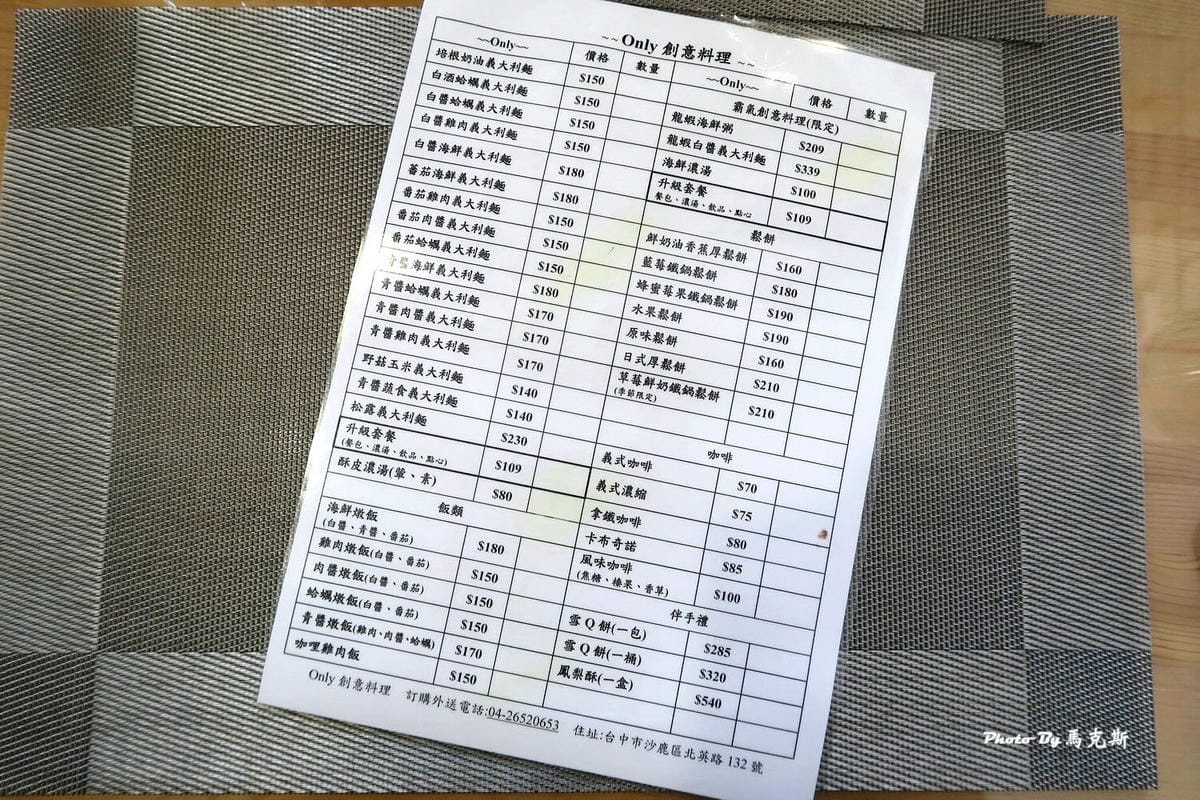 ~~Only 創意料理~~
~~Only~~ 價格 數量
培根奶油義大利麵 $150
白酒蛤蠣義大利麵 $150
白醬蛤蠣義大利麵 $150
白醬雞肉義大利麵 $150
白醬海鮮義大利麵 $180
蕃茄海鮮義大利麵 $180
番茄雞肉義大利麵 $150
番茄肉醬義大利麵 $150
番茄蛤蠣義大利麵 $150
青醬海鮮義大利麵 $180
青醬蛤蠣義大利麵 $170
青醬肉醬義大利麵 $170
青醬雞肉義大利麵 $170
野菇玉米義大利麵 $140
青醬蔬食義大利麵 $140
松露義大利麵 $230
升級套餐 $109
(餐包、濃湯、飲品、點心)
酥皮濃湯(葷、素) $80
飯類
海鮮燉飯 $180
(白醬、青醬、番茄)
雞肉燉飯(白醬、番茄) $150
肉醬燉飯(白醬、番茄) $150
蛤蠣燉飯(白醬、番茄) $150
青醬燉飯(雞肉、肉醬、蛤蠣) $170
咖哩雞肉飯 $150
~~Only~~ 價格 數量
霸氣創意料理(限定)
龍蝦海鮮粥 $209
龍蝦白醬義大利麵 $339
海鮮濃湯 $100
升級套餐 $109
餐包、濃湯、飲品、點心
鬆餅
鮮奶油香蕉厚鬆餅 $160
藍莓鐵鍋鬆餅 $180
蜂蜜莓果鐵鍋鬆餅 $190
水果鬆餅 $190
原味鬆餅 $160
日式厚鬆餅 $210
草莓鮮奶鐵鍋鬆餅 $210
(季節限定)
咖啡
義式咖啡 $70
義式濃縮 $75
拿鐵咖啡 $80
卡布奇諾 $85
風味咖啡 $100
(焦糖、榛果、香草)
伴手禮
雪 Q 餅(一包) $285
雪 Q 餅(一桶) $320
鳳梨酥(一盒) $540
Only 創意料理 訂購外送電話:04-26520653 住址:台中市沙鹿區北英路 132 號
Photo By 馬克斯